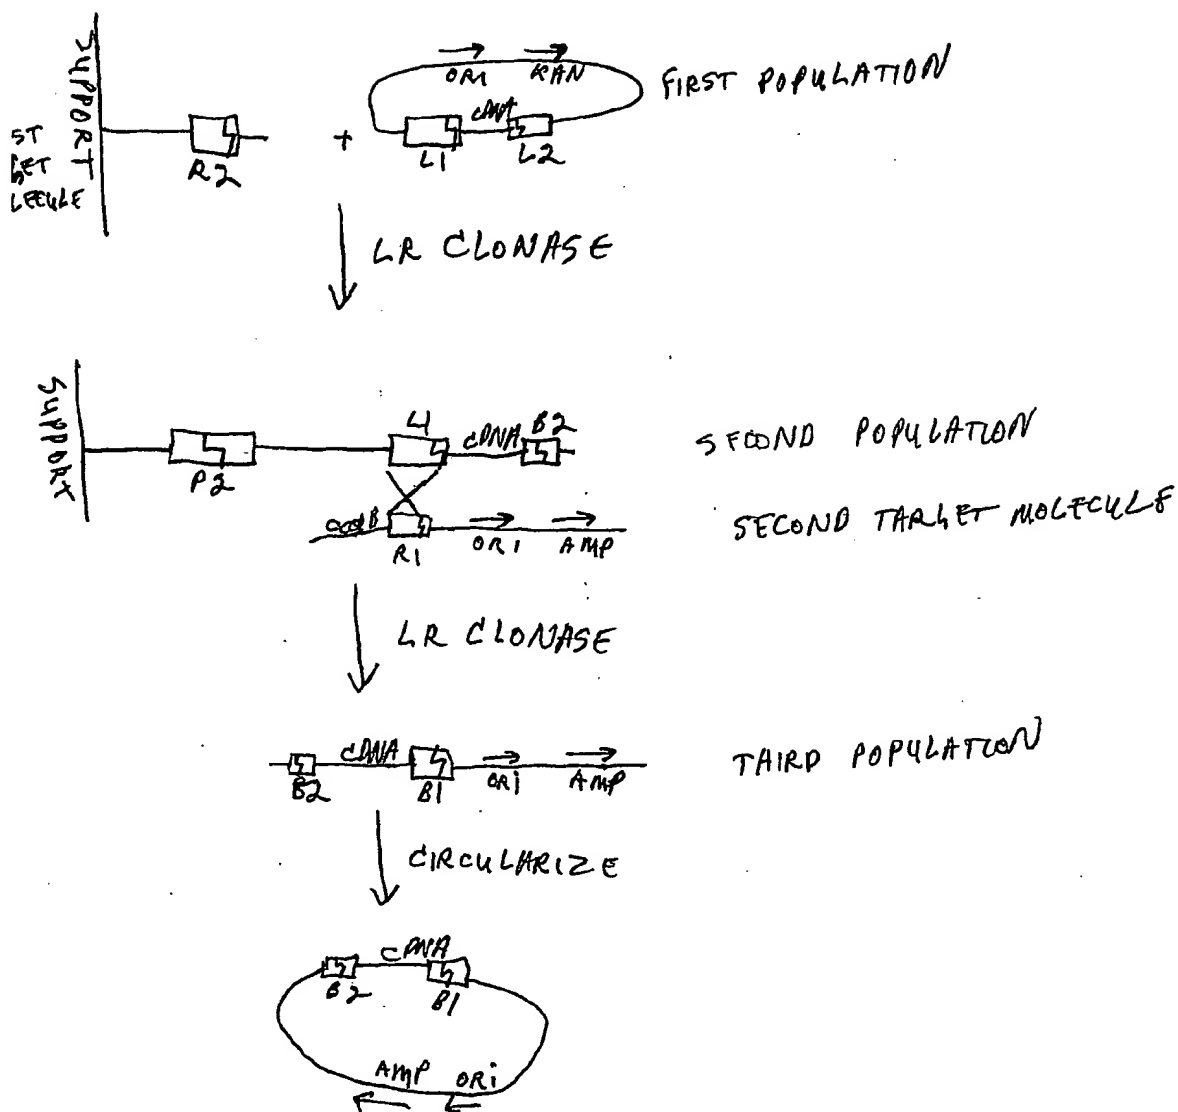 SUPPORT
ST
GET
LECULE
R2
+
ORI
KAN
cDNA
L1
L2
FIRST POPULATION
LR CLONASE
SUPPORT
P2
L1
cDNA
B2
SECOND POPULATION
ccdB
R1
ORI
AMP
SECOND TARGET MOLECULE
LR CLONASE
B2
cDNA
B1
ORI
AMP
THIRD POPULATION
CIRCULARIZE
cDNA
B2
B1
AMP
ORI